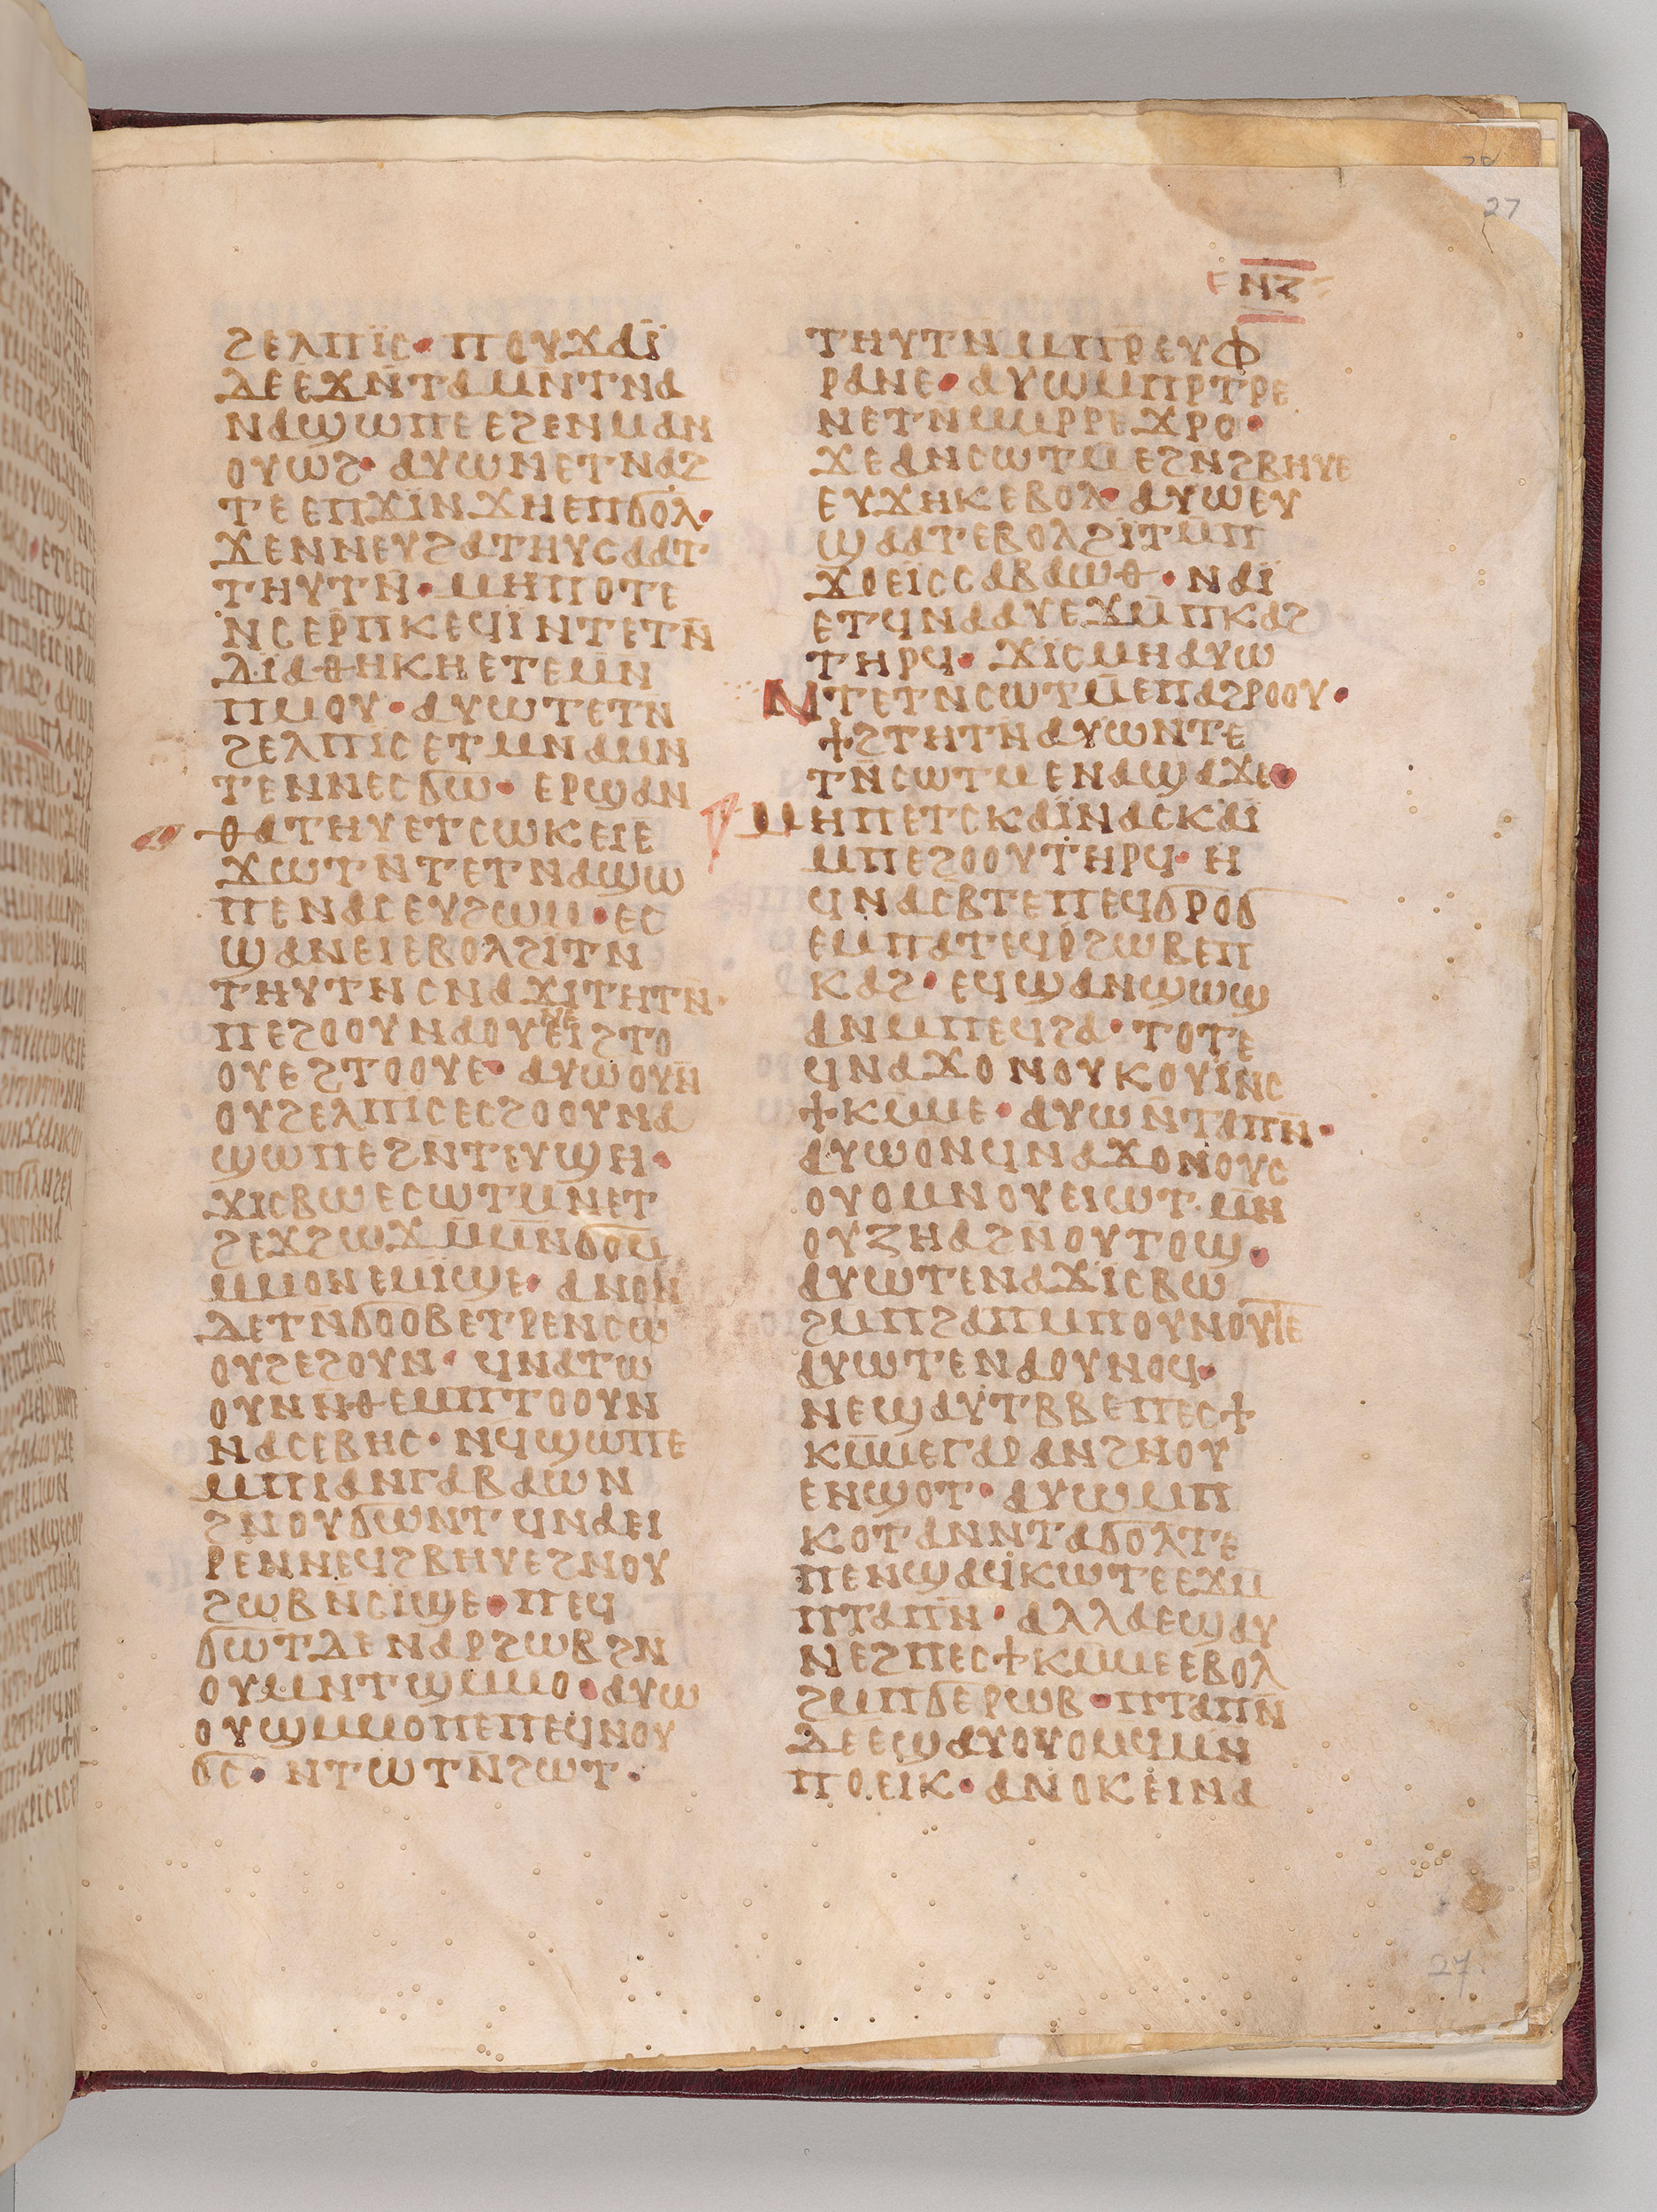 27
ⲛⲍ
ϩⲉⲗⲡⲓ̈ⲥ· ⲡⲟⲩϫⲁⲓ̈
ⲇⲉⲉϫⲛ̄ⲧⲁⲙⲛ̄ⲧⲛⲁ
ⲛⲁϣⲱⲡⲉⲉϩⲉⲛⲙⲁⲛ
ⲟⲩⲱϩ· ⲁⲩⲱⲛⲉⲧⲛⲁϩ
ⲧⲉⲉⲡϫⲓⲛϫⲏⲉⲡϭⲟⲗ·
ϫⲉⲛⲛⲉⲩϩⲁⲧⲏⲩⲥⲁⲁⲧ
ⲧⲏⲩⲧⲛ̄· ⲙⲏⲡⲟⲧⲉ
ⲛⲥⲉⲣ̄ⲡⲕⲉϥⲓ̈ⲛⲧⲉⲧⲛ̄
ⲇⲓⲁⲑⲏⲕⲏⲉⲧⲉⲙⲛ
ⲡⲙⲟⲩ· ⲁⲩⲱⲧⲉⲧⲛ
ϩⲉⲗⲡⲓⲥⲉⲧⲙⲛⲁⲙⲛ
ⲧⲉⲛⲛⲉⲥϭⲱ· ⲉⲣϣⲁⲛ
ⲑⲁⲧⲏⲩⲉⲧⲥⲱⲕⲉⲓⲉ
ϫⲱⲧⲛⲧⲉⲧⲛⲁϣⲱ
ⲡⲉⲛⲁⲥⲉⲩϩⲱⲙ· ⲉⲥ
ϣⲁⲛⲉⲓⲉⲃⲟⲗϩⲓⲧⲛ
ⲧⲏⲩⲧⲛⲥⲛⲁϫⲓⲧⲏⲧⲛ̄·
ⲛⲉ
ⲡⲉϩⲟⲟⲩⲛⲁⲟⲩⲉⲓϩⲧⲟ
ⲟⲩⲉϩⲧⲟⲟⲩⲉ· ⲁⲩⲱⲟⲩⲛ̄
ⲟⲩϩⲉⲗⲡⲓⲥⲉⲥϩⲟⲟⲩⲛⲁ
ϣⲱⲡⲉϩⲛⲧⲉⲩϣⲏ·
ϫⲓⲥⲃⲱⲉⲥⲱⲧⲙⲛⲉⲧ
ϩⲉϫϩⲱϫⲙⲙⲛϭⲟⲙ
ⲙⲙⲟⲛⲉⲙⲓϣⲉ· ⲁⲛⲟⲛ
ⲇⲉⲧⲛϭⲟⲟⲃⲉⲧⲣⲉⲛⲥⲱ
ⲟⲩϩⲉϩⲟⲩⲛ· ϥⲛⲁⲧⲱ
ⲟⲩⲛⲛⲑⲉⲙⲡⲧⲟⲟⲩⲛ
ⲛⲁⲥⲉⲃⲏⲥ· ⲛϥϣⲱⲡⲉ
ⲙⲡⲓⲁⲛⲅⲁⲃⲁⲱⲛ
ϩⲛⲟⲩϭⲱⲛⲧϥⲛⲁⲉⲓ
ⲣⲉⲛⲛⲉϥϩⲃⲏⲩⲉϩⲛⲟⲩ
ϩⲱⲃⲛ̄ⲥⲓϣⲉ· ⲡⲉϥ
ϭⲱⲧⲇⲉⲛⲁⲣϩⲱⲃϩⲛ
ⲟⲩⲙⲛⲧϣⲙⲙⲟ· ⲁⲩⲱ
ⲟⲩϣⲙⲙⲟⲡⲉⲡⲉϥⲛⲟⲩ
ϭⲥ· ⲛⲧⲱⲧⲛϩⲱⲧ·
ⲧⲏⲩⲧⲛ̄ⲙⲡⲣⲉⲩⲫ
ⲣⲁⲛⲉ· ⲁⲩⲱⲙⲡⲣⲧⲣⲉ
ⲛⲉⲧⲛⲙⲣⲣⲉϫⲣⲟ·
ϫⲉⲁⲛⲥⲱⲧⲙ̄ⲉϩⲛϩⲃⲏⲩⲉ
ⲉⲩϫⲏⲕⲉⲃⲟⲗ· ⲁⲩⲱⲉⲩ
ϣⲁⲁⲧⲉⲃⲟⲗϩⲓ̈ⲧⲙⲡ
ϫⲟⲉⲓⲥⲥⲁⲃⲁⲱⲑ· ⲛⲁⲓ̈
ⲉⲧϥⲛⲁⲁⲩⲉϫⲙ̄ⲡⲕⲁϩ
ⲧⲏⲣϥ· ϫⲓⲥⲙⲏⲁⲩⲱ
ⲛⲧⲉⲧⲛⲥⲱⲧⲙ̄ⲉⲡⲁϩⲣⲟⲟⲩ·
ϯϩⲧⲏⲧⲛ̄ⲁⲩⲱⲛⲧⲉ
ⲧⲛ̄ⲥⲱⲧⲙⲉⲛⲁϣⲁϫⲉ·
ⲙⲏⲡⲉⲧⲥⲕⲁⲓ̈ⲛⲁⲥⲕⲁⲓ̈
ⲙⲡⲉϩⲟⲟⲩⲧⲏⲣϥ· ⲏ
ϥⲛⲁⲥⲃⲧⲉⲡⲉϥϭⲣⲟϭ
ⲉⲙⲡⲁⲧⲉϥⲣ̄ϩⲱⲃⲉⲡ
ⲕⲁϩ· ⲉϥϣⲁⲛϣⲱϣ
ⲁⲛⲙⲡⲉϥϩⲁ· ⲧⲟⲧⲉ
ϥⲛⲁϫⲟⲛⲟⲩⲕⲟⲩⲓ̈ⲛⲥ
ϯⲕⲙ̄ⲙⲉ· ⲁⲩⲱⲛ̄ⲧⲁⲡⲛ̄·
ⲁⲩⲱⲟⲛϥⲛⲁϫⲟⲛⲟⲩⲥ
ⲟⲩⲟⲙⲛⲟⲩⲉⲓⲱⲧ· ⲙⲛ
ⲟⲩⲍⲏⲁϩⲛⲟⲩⲧⲟϣ·
ⲁⲩⲱⲧⲉⲛⲁϫⲓⲥⲃⲱ
ϩⲙⲡϩⲁⲡⲙⲡⲟⲩⲛⲟⲩⲧⲉ
ⲁⲩⲱⲧⲉⲛⲁⲟⲩⲛⲟϥ·
ⲛⲉϣⲁⲩⲧⲃⲃⲉⲡⲉⲥϯ
ⲕⲙ̄ⲙⲉⲅⲁⲣⲁⲛϩⲛⲟⲩ
ⲉⲛϣⲟⲧ· ⲁⲩⲱⲙⲡ
ⲕⲟⲧⲁⲛⲛⲧⲁϭⲟⲗⲧⲉ
ⲡⲉⲛϣⲁϥⲕⲱⲧⲉⲉϫⲙ
ⲡⲧⲁⲡⲛ̄· ⲁⲗⲗⲁⲉϣⲁⲩ
ⲛⲉϩⲡⲉⲥϯⲕⲙ̄ⲙⲉⲉⲃⲟⲗ
ϩⲙⲡϭⲉⲣⲱⲃ· ⲡⲧⲁⲡⲛ̄
ⲇⲉⲉϣⲁⲩⲟⲩⲟⲙϥⲙⲛ
ⲡⲟⲉⲓⲕ· ⲁⲛⲟⲕⲉⲓⲛⲁ
27